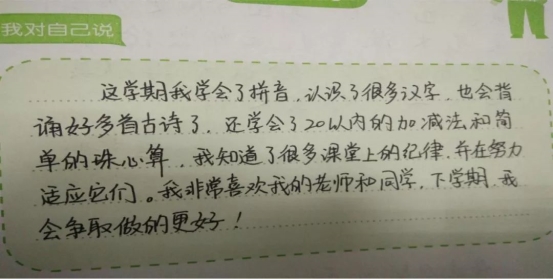 我对自己说
这学期我学会了拼音，认识了很多汉字，也会背
诵好多首古诗了，还学会了20以内的加减法和简
单的珠心算，我知道了很多课堂上的纪律，并在努力
适应它们。我非常喜欢我的老师和同学，下学期，我
会争取做的更好！